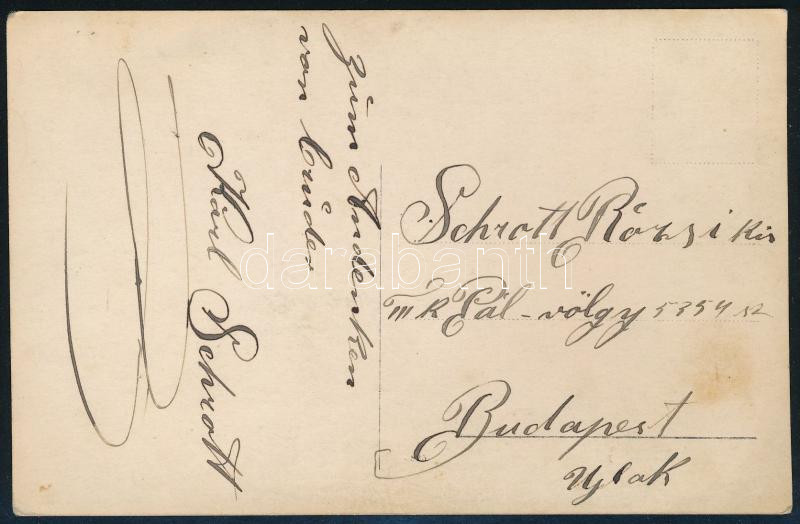 Zum Andenken
von Bruder
Karl Schrott
Schrott Rózsi
III K Pál-völgy 5354 sz
Budapest
Ujlak
darabanth